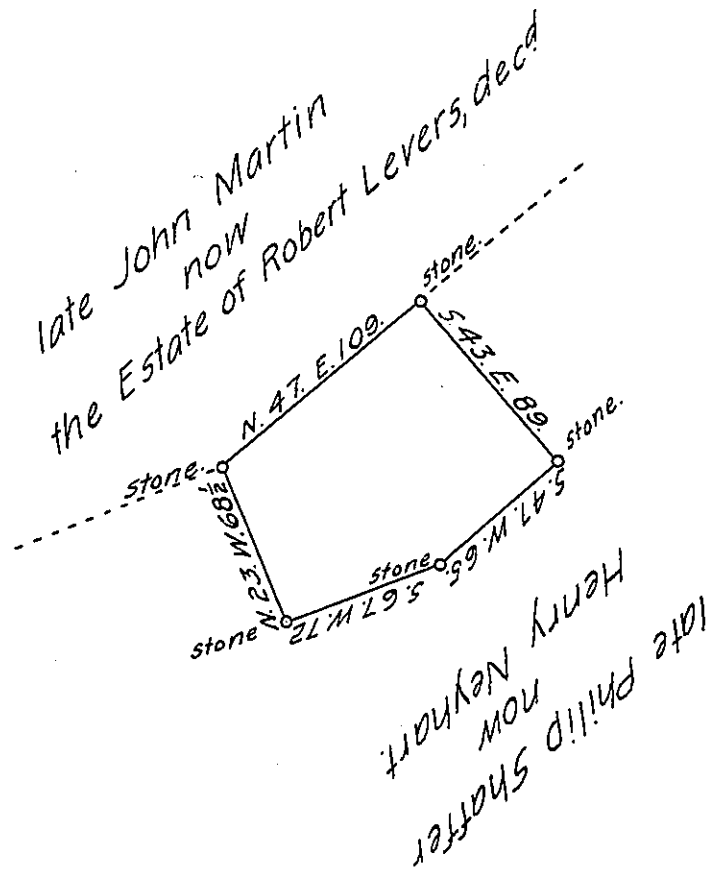 late John Martin
now
the Estate of Robert Levers, decd
stone.
N. 47. E. 109.
S. 43. E. 89.
stone.
stone.
S. 47. W. 65.
N. 23. W. 68½
stone
S. 67. W. 72
stone
late Philip Shaffer
now
Henry Neyhart.